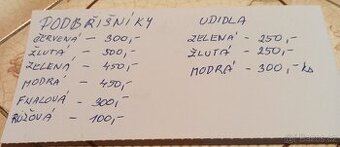 PODBŘIŠNÍKY
ČERVENÁ - 300,-
ŽLUTÁ - 500,-
ZELENÁ - 450,-
MODRÁ - 450,-
FIALOVÁ - 300,-
RŮŽOVÁ - 100,-
UDIDLA
ZELENÁ - 250,-
ŽLUTÁ - 250,-
MODRÁ - 300,- ks